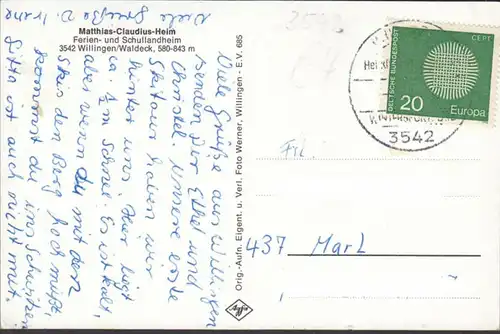 Matthias-Claudius-Heim
Ferien- und Schullandheim
3542 Willingen/Waldeck, 580-843 m
Viele Grüße aus Willingen
senden Dir Ethel und
Christel. Unsere erste
Skitour haben wir
hinter uns. Hier liegt
ca. 1/2 m Schnee. Es ist kalt,
aber wenn du mit den
Skis den Berg hoch mußt,
kommst du ins Schwitzen
Gitta ist auch nicht mit.
Viele Grüße v. Irene
Orig.-Aufn. Eigent. u. Verl. Foto Werner, Willingen - E.V. 685
DEUTSCHE BUNDESPOST
CEPT
20
Europa
3542
Frl.
437 Marl